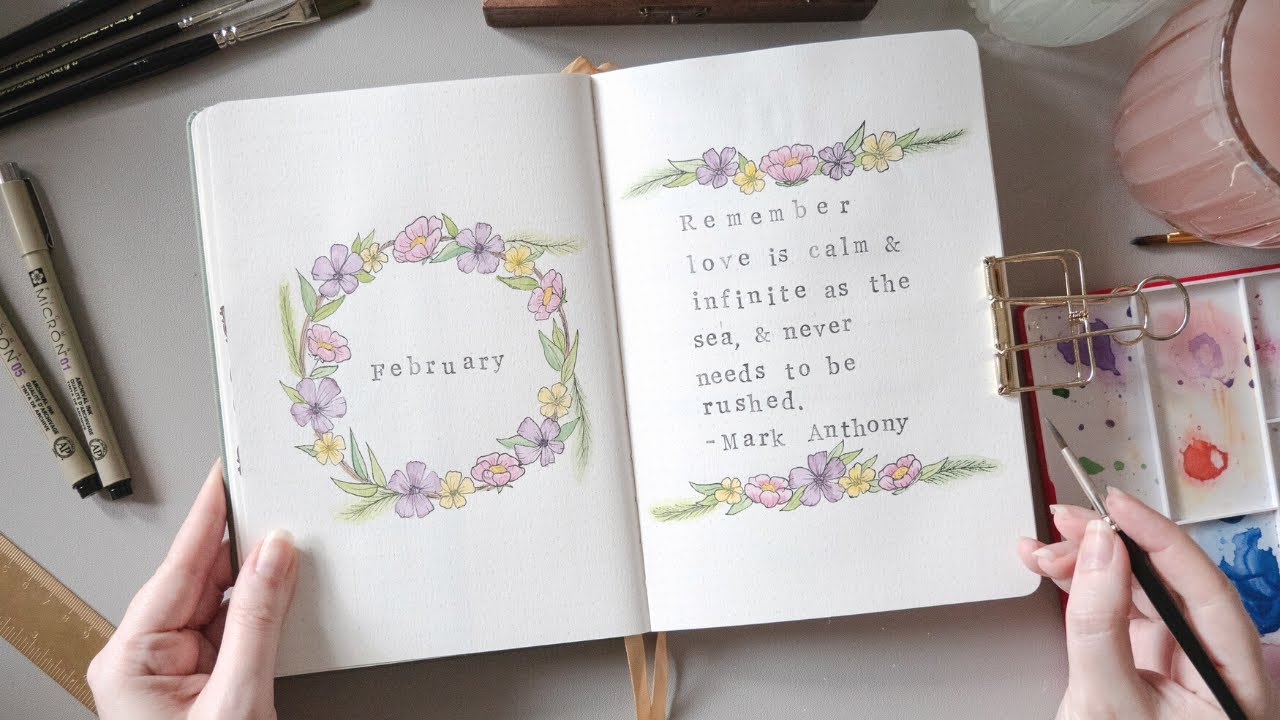 February
Remember
love is calm &
infinite as the
sea, & never
needs to be
rushed.
-Mark Anthony
MICRON 01
MICRON 05